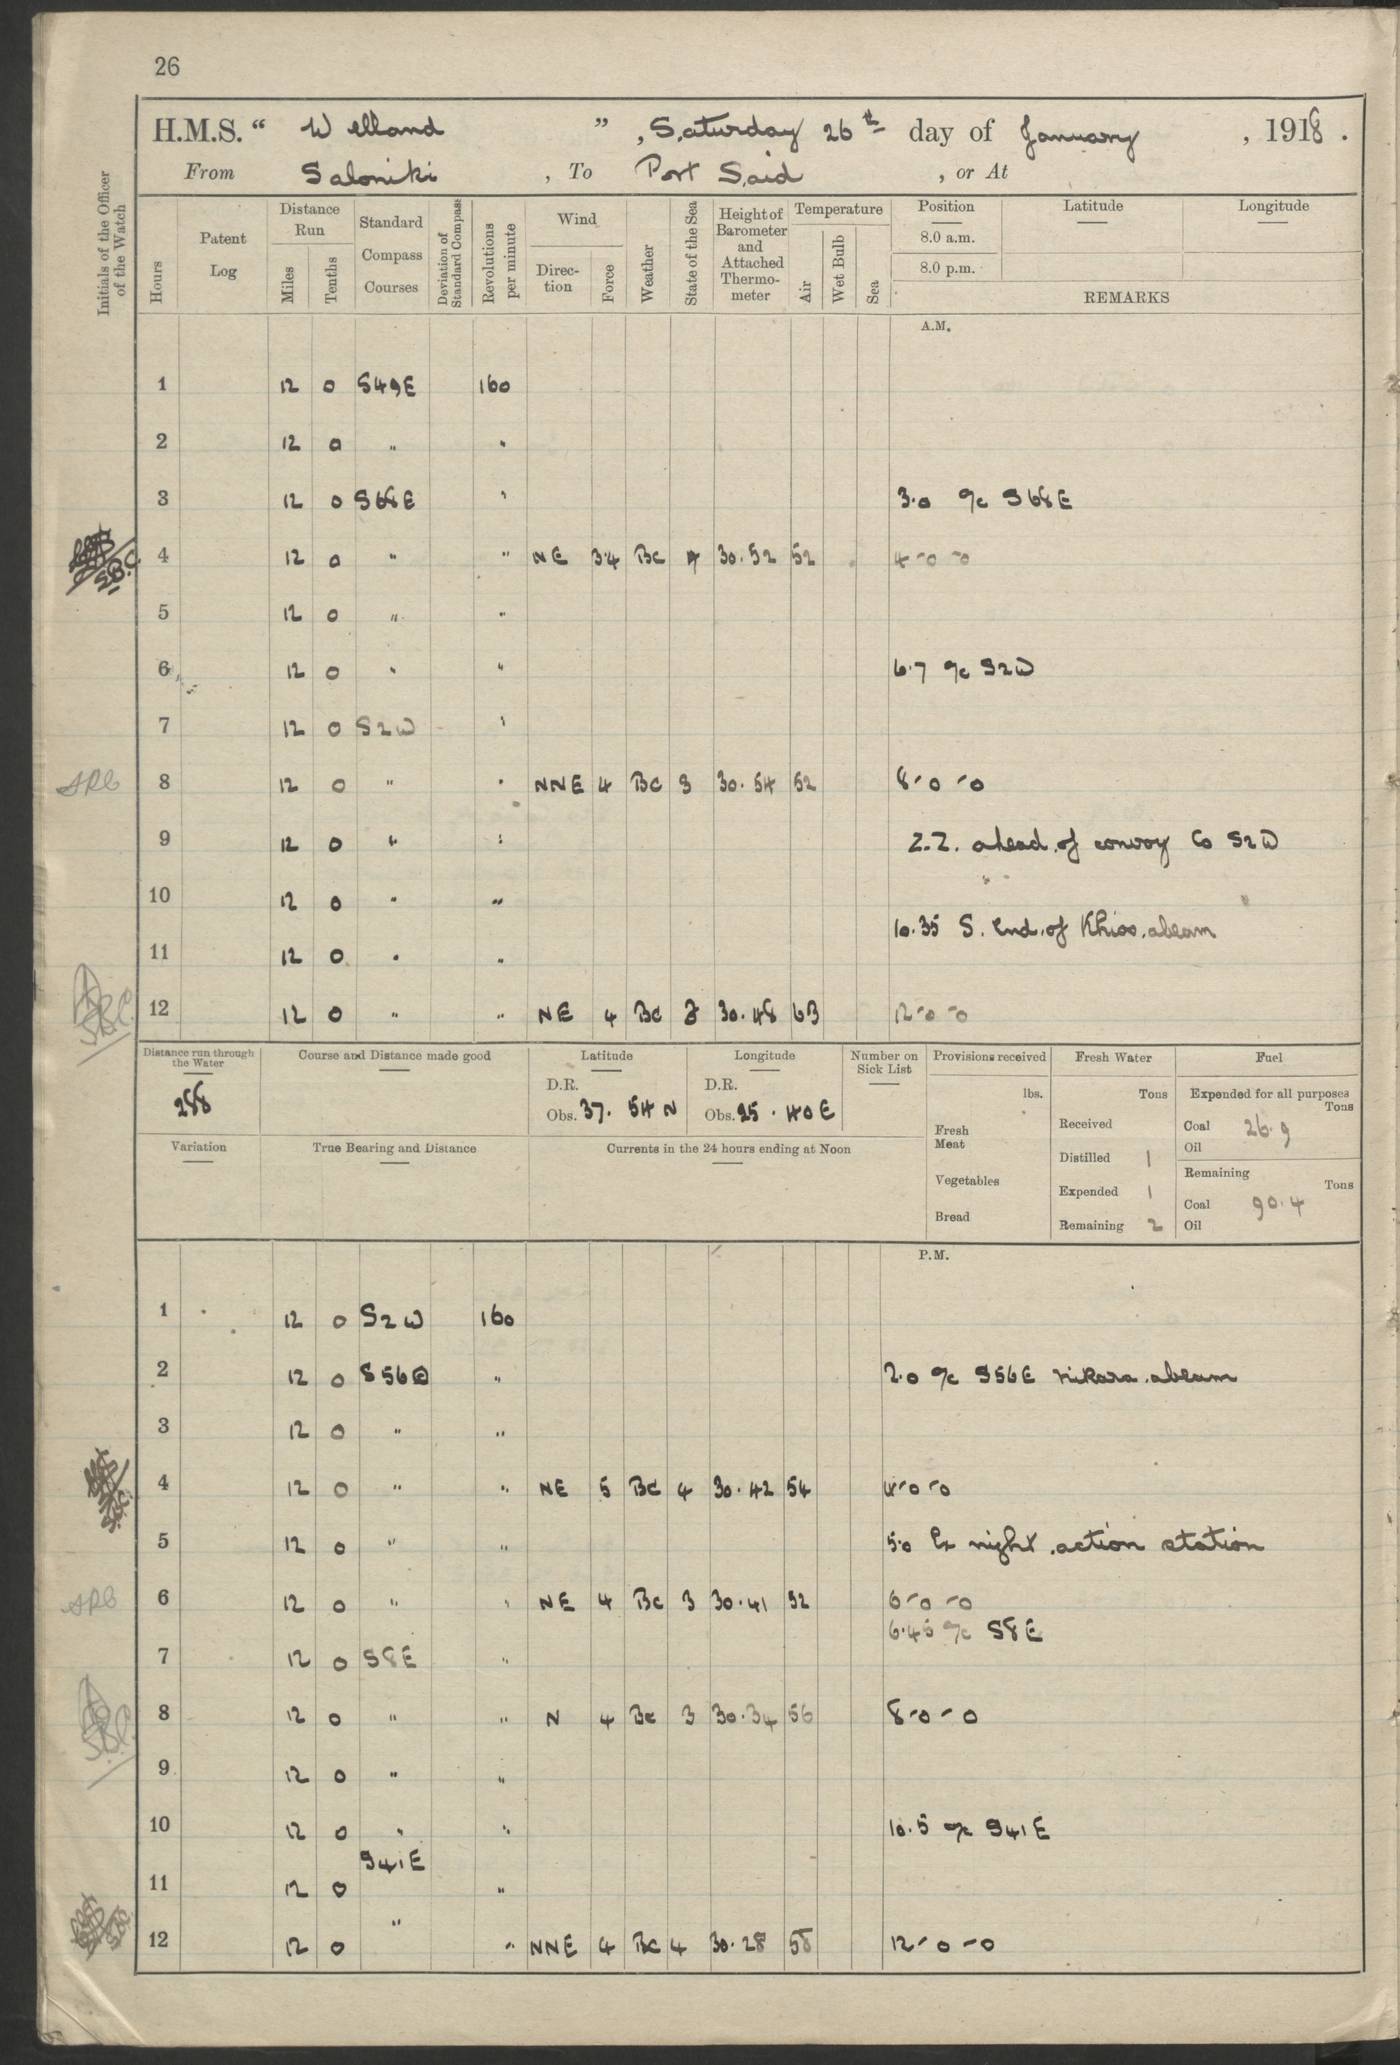 26
H.M.S. “ Welland ” , Saturday 26th day of January , 1918 .
From Saloniki , To Port Said , or At
Initials of the Officer of the Watch
Hours
Patent Log
Distance Run
Miles
Tenths
Standard Compass Courses
Deviation of Standard Compass
Revolutions per minute
Wind
Direction
Force
Weather
State of the Sea
Height of Barometer and Attached Thermometer
Temperature
Air
Wet Bulb
Sea
Position
8.0 a.m.
8.0 p.m.
Latitude
Longitude
REMARKS
A.M.
1 12 0 S49E 160
2 12 0 " "
3 12 0 S68E " 3.0 a/c S68E
4 12 0 " " NE 3.4 BC 30.52 52 4-0-0
5 12 0 " "
6 12 0 " " 6.7 a/c S2W
7 12 0 S2W "
8 12 0 " " NNE 4 BC 3 30.54 52 8-0-0
9 12 0 " " Z.Z. ahead of convoy Co S2W
10 12 0 " "
10.35 S. End of Khios abeam
11 12 0 " "
12 12 0 " " NE 4 BC 30.48 63 12-0-0
Distance run through the Water
288
Course and Distance made good
Latitude
D.R.
Obs. 37. 54 N
Longitude
D.R.
Obs. 25 . 40 E
Number on Sick List
Provisions received
lbs.
Fresh Meat
Vegetables
Bread
Fresh Water
Tons
Received
Distilled 1
Expended 1
Remaining 2
Fuel
Expended for all purposes
Tons
Coal 26.9
Oil
Remaining
Tons
Coal 90.4
Oil
Variation
True Bearing and Distance
Currents in the 24 hours ending at Noon
P.M.
1 12 0 S2W 160
2 12 0 S56E " 2.0 a/c S56E Nikara abeam
3 12 0 " "
4 12 0 " " NE 5 BC 4 30.42 54 4-0-0
5 12 0 " " 5.0 Ex night action station
6 12 0 " " NE 4 BC 3 30.41 52 6-0-0
6.45 a/c S8E
7 12 0 S8E "
8 12 0 " " N 4 BC 3 30.34 56 8-0-0
9 12 0 " "
10 12 0 " " 10.5 a/c S41E
S41E
11 12 0 "
12 12 0 " " NNE 4 BC 4 30.28 58 12-0-0